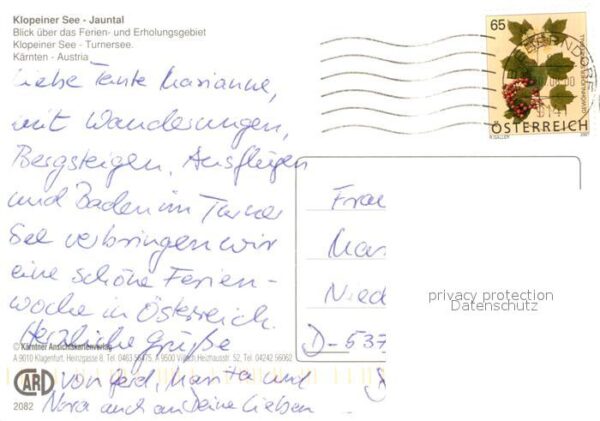 Klopeiner See - Jauntal
Blick über das Ferien- und Erholungsgebiet
Klopeiner See - Turnersee.
Kärnten - Austria
Liebe Tante Marianne,
mit Wanderungen,
Bergsteigen, Ausflügen
und Baden im Turner
See verbringen wir
eine schöne Ferien-
woche in Österreich.
Herzliche Grüße
von Gerd, Marita und
Nora auch an Deine Lieben
© Kärntner Ansichtskartenverlag
A 9010 Klagenfurt, Heinzgasse 8, Tel. 0463 56475, A 9500 Villach, Tel. 04242 56062
CARD
2082
65
ÖSTERREICH
Frau
Mar
Nied
D-537
privacy protection
Datenschutz